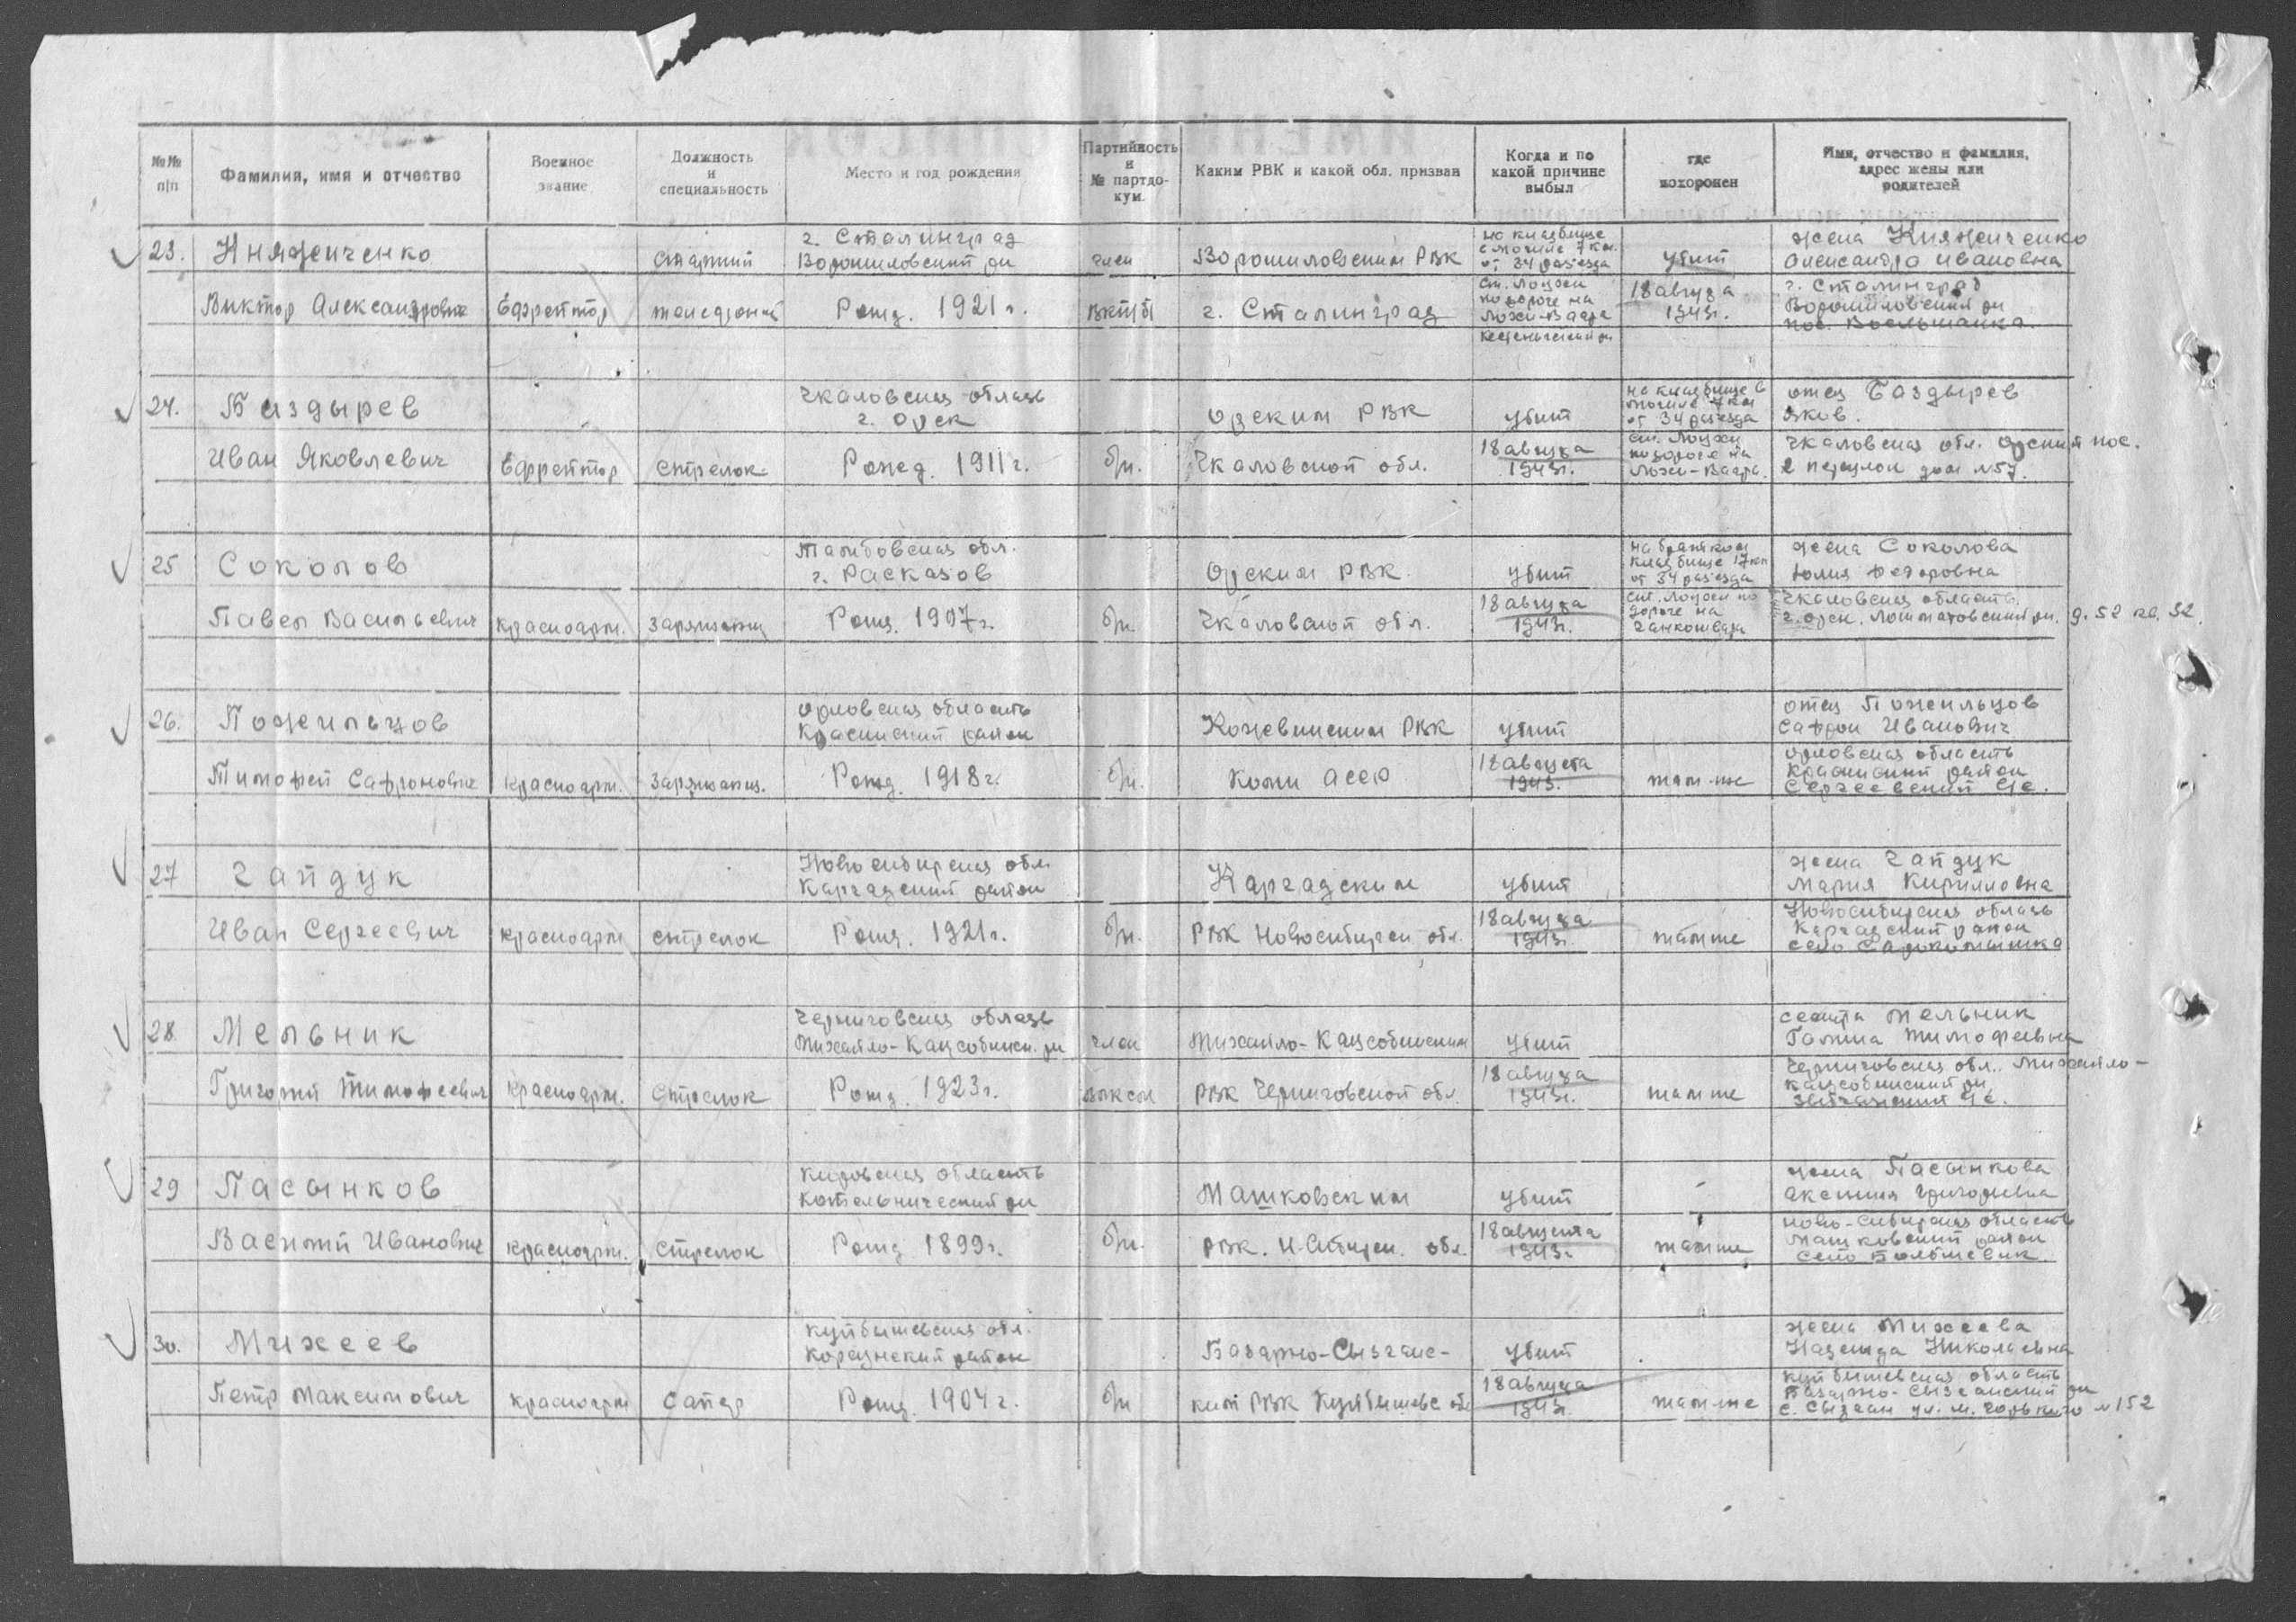 №№ п|п
Фамилия, имя и отчество
Военное звание
Должность и специальность
Место и год рождения
Партийность и № партдокум.
Каким РВК и какой обл. призван
Когда и по какой причине выбыл
где похоронен
Имя, отчество и фамилия, адрес жены или родителей
23. Княженченко
Виктор Александрович
Ефрейтор
старший
г. Сталинград
Ворошиловский р-н
Рожд. 1921 г.
член
ВКП/б/
Ворошиловским РВК
г. Сталинград
на кладбище
в могиле 7 км.
от 34 разъезда
ст. Лоухи
по дороге на
Кестеньгский р-н
убит
18 августа
1943г.
жена Княженченко
Александра Ивановна
г. Сталинград
Ворошиловский р-н
пос.
24. Баздырев
Иван Яковлевич
Ефрейтор
стрелок
Чкаловская область
г. Орск
Рожд. 1911 г.
б/п.
Орским РВК
Чкаловской обл.
убит
18 августа
1943г.
на кладбище в
могиле 7 км
от 34 разъезда
ст. Лоухи
по дороге на
отец Баздырев
Яков.
Чкаловская обл. Орский пос.
2 переулок дом №57.
25 Соколов
Павел Васильевич
Красноарм.
Заряжающ
Тамбовская обл.
г. Расказов
Рожд. 1907 г.
б/п.
Орским РВК
Чкаловской обл.
убит
18 августа
1943г.
на братском
кладбище 17 км
от 34 разъезда
ст. Лоухи по
дороге на
жена Соколова
Юлия Федоровна
Чкаловская область
г. Орск. р-н. д. 52 кв. 32.
26. Пожильцов
Тимофей Сафронович
Красноарм.
Заряжающ.
Орловская область
Краснинский район
Рожд. 1918 г.
б/п.
Кожвинским РВК
Коми АССР
убит
18 августа
1943.
там-же
отец Пожильцов
Сафрон Иванович
Орловская область
Краснинский район
Сергеевский с/с.
27 Гайдук
Иван Сергеевич
Красноарм
стрелок
Новосибирская обл
Каргадский район
Рожд. 1921 г.
б/п.
Каргадским
РВК Новосибирск обл.
убит
18 августа
1943г.
там же
жена Гайдук
Мария Кирилловна
Новосибирская область
Каргадский район
село
28 Мельник
Григорий Тимофеевич
Красноарм.
Стрелок
Черниговская область
Михайло-Коцюбинск. р-н
Рожд. 1923 г.
член
ВЛКСМ
Михайло-Коцюбинским
РВК Черниговской обл.
убит
18 августа
1943г.
там же
сестра Мельник
Галина Тимофеевна
Черниговская обл. Михайло-
Коцюбинский р-н
29 Пасынков
Василий Иванович
Красноарм.
Стрелок
Кировская область
Котельнический р-н
Рожд. 1899 г.
б/п.
Машковским
РВК. Н-Сибирск. обл.
убит
18 августа
1943г.
там же
жена Пасынкова
Аксинья Григорьевна
Ново-Сибирская область
Машковский район
село Большевик.
30. Михеев
Петр Максимович
Красноарм
Сапер
Куйбышевская обл.
район
Рожд. 1904 г.
б/п
Базарно-Сызганс-
ким РВК Куйбышевс обл
убит
18 августа
1943г.
там же
жена Михеева
Надежда Николаевна
Куйбышевская область
Базарно-Сызганский р-н
с. Сызган ул. М. Горького №152